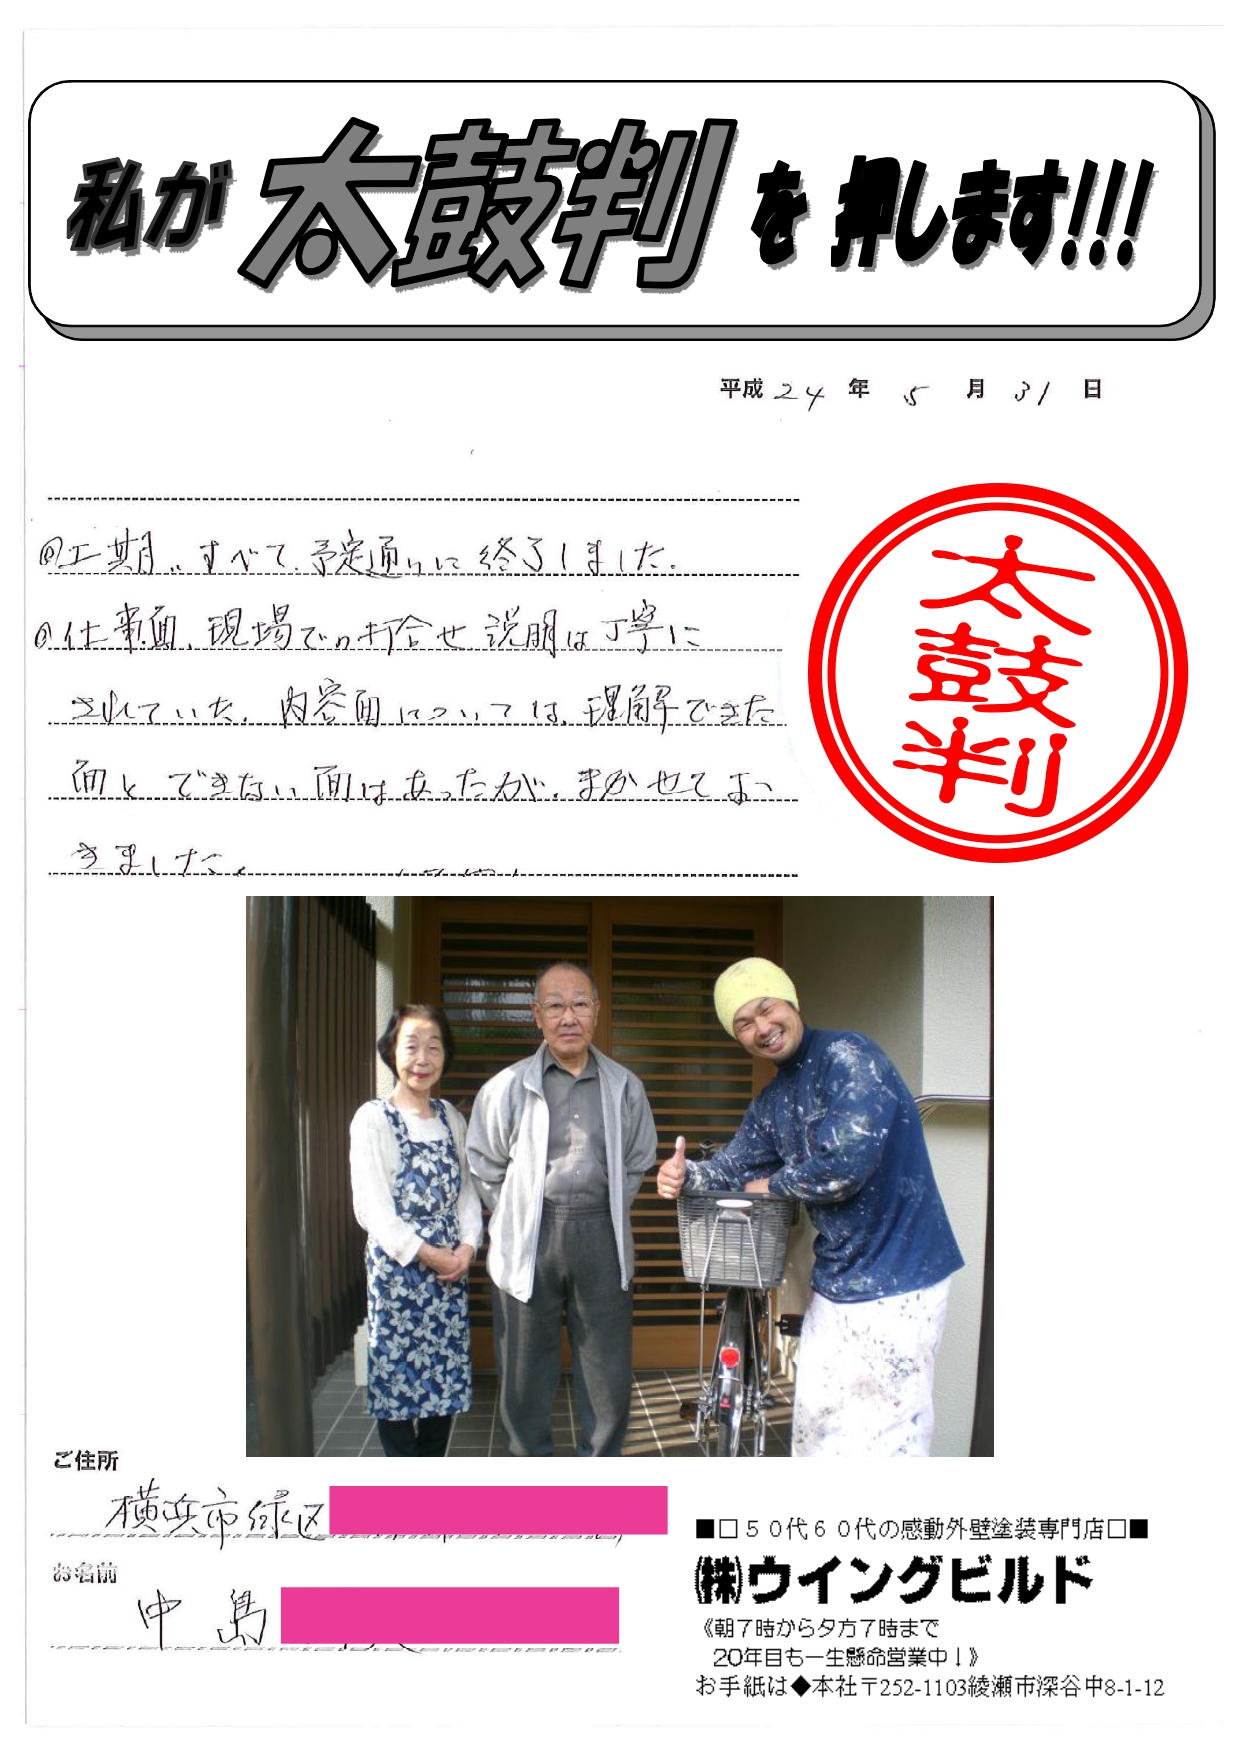 私が太鼓判を押します!!!
平成24年5月31日
◎工期、すべて、予定通りに終了しました。
◎仕事面、現場での打合せ、説明は丁寧に
されていた。内容面については、理解できた
面とできない面はあったが、まかせてお
きました。
太鼓判
ご住所
横浜市緑区
お名前
中島
■□50代60代の感動外壁塗装専門店□■
㈱ウイングビルド
《朝7時から夕方7時まで
20年目も一生懸命営業中!》
お手紙は◆本社〒252-1103綾瀬市深谷中8-1-12